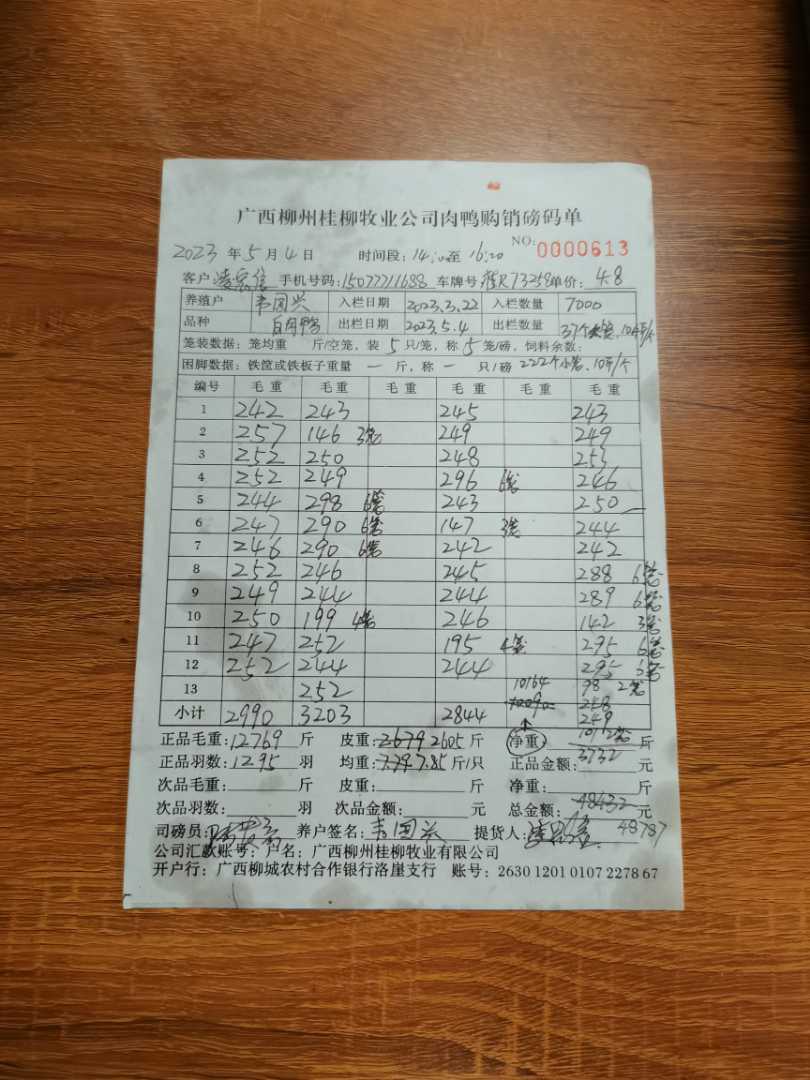 广西柳州桂柳牧业公司肉鸭购销磅码单
2023 年 5 月 4 日 时间段: 14:00 至 16:20 NO: 0000613
客户 手机号码: 15077711688 车牌号 73259 单价: 4.8
养殖户 韦国兴 入栏日期 2023.3.22 入栏数量 7000
品种 白肉鸭 出栏日期 2023.5.4 出栏数量 37个
笼装数据: 笼均重 斤/空笼, 装 5 只/笼, 称 5 笼/磅, 饲料余数:
困脚数据: 铁筐或铁板子重量 一 斤, 称 一 只/磅 222个小笼、10斤/个
编号 毛重 毛重 毛重 毛重 毛重 毛重
1 242 243 245 243
2 257 146 3笼 249 249
3 252 250 248 253
4 252 249 296 6笼 246
5 244 298 6笼 243 250
6 247 290 6笼 147 3笼 244
7 246 290 6笼 242 242
8 252 246 245 288 6笼
9 249 244 244 289 6笼
10 250 199 4笼 246 142 3笼
11 247 252 195 4笼 295 6笼
12 252 244 244 295 6笼
13 252 10164 98 2笼
248
小计 2990 3203 2844 249
正品毛重: 12769 斤 皮重: 2679 2605 斤 净重: 斤
3732
正品羽数: 1295 羽 均重: 7.79 7.85 斤/只 正品金额: 元
次品毛重: 斤 皮重: 斤 净重: 斤
次品羽数: 羽 次品金额: 元 总金额: 48432 元
司磅员: 养户签名: 韦国兴 提货人: 48787
公司汇款账号: 户名: 广西柳州桂柳牧业有限公司
开户行: 广西柳城农村合作银行洛崖支行 账号: 2630 1201 0107 2278 67